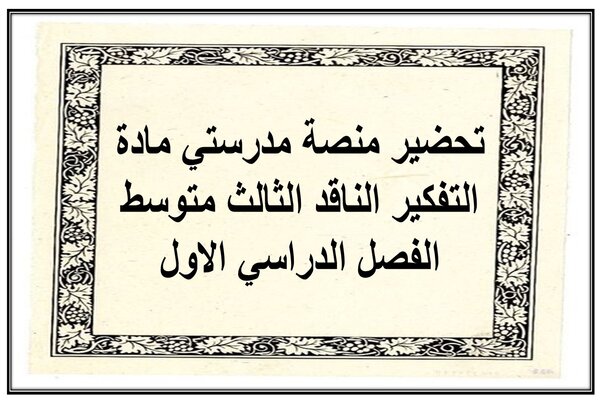 تحضير منصة مدرستي مادة
التفكير الناقد الثالث متوسط
الفصل الدراسي الاول